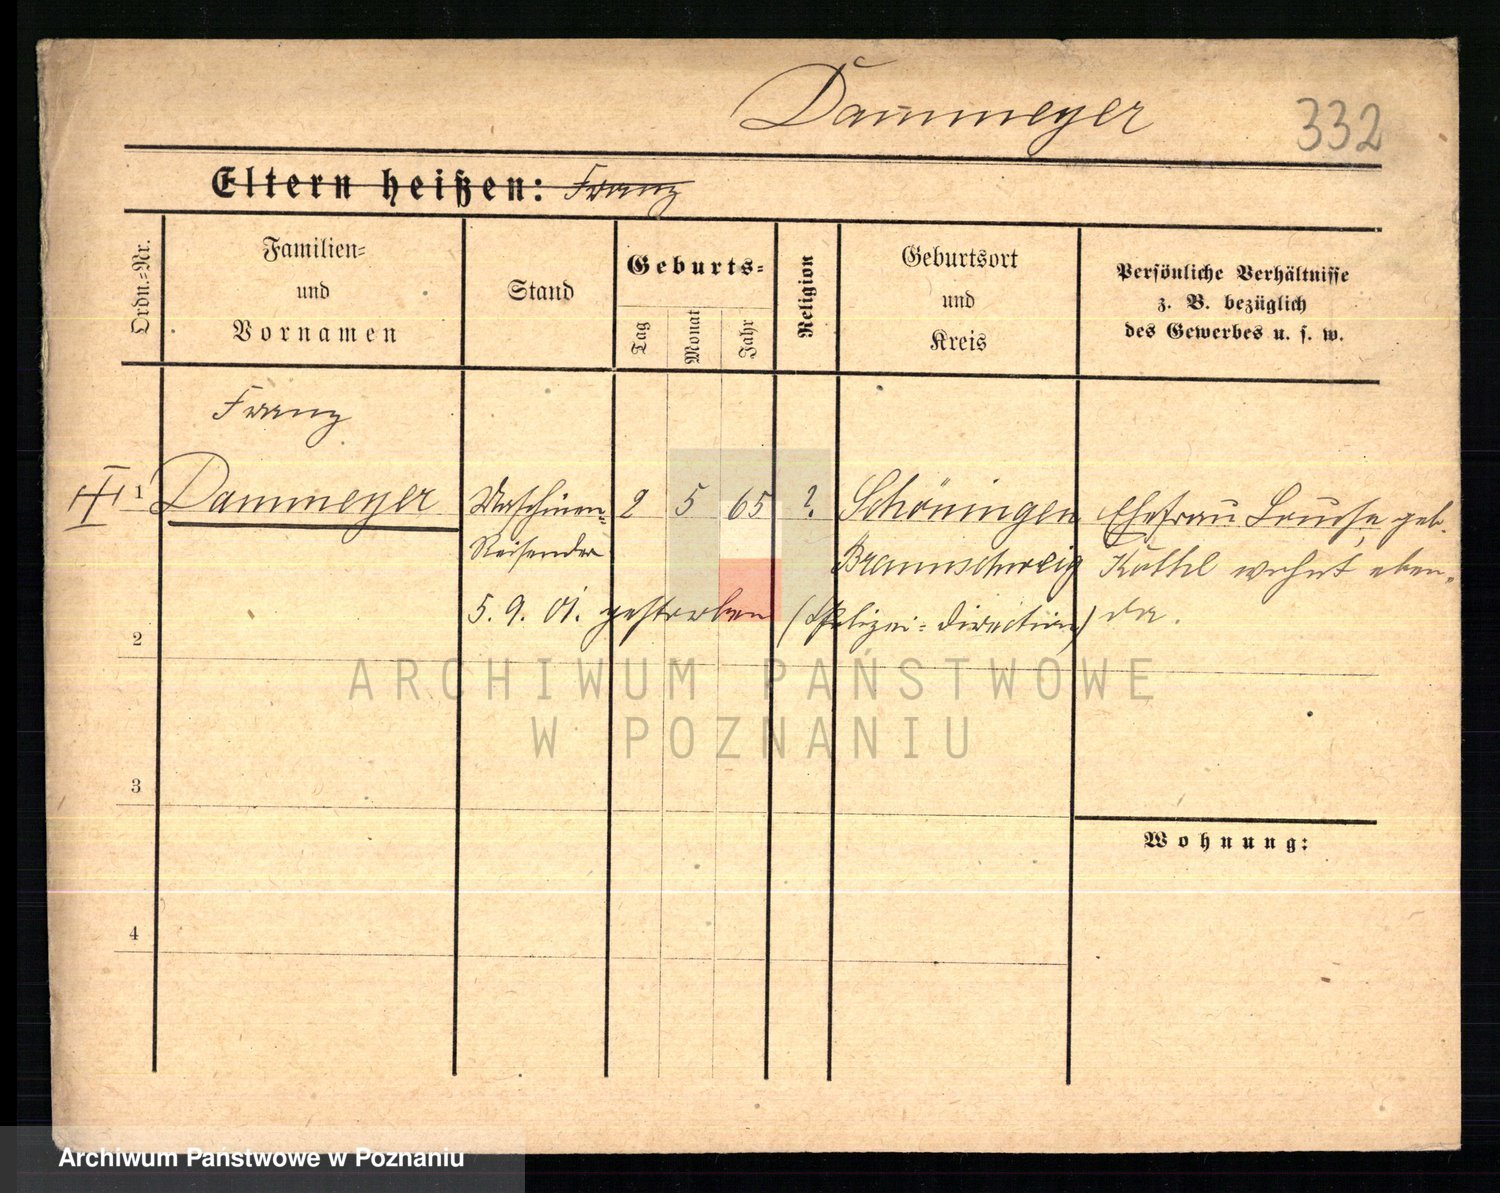 Dammeyer
332
Eltern heißen: Franz
Ordn.-Nr.
Familien-
und
Vornamen
Stand
Geburts-
Tag
Monat
Jahr
Religion
Geburtsort
und
Kreis
Persönliche Verhältnisse
z. B. bezüglich
des Gewerbes u. s. w.
Franz
1 Dammeyer Maschinen- 2 5 65 ? Schöningen Ehefrau Louise, geb.
Reisender Braunschweig Küttel wohnt eben-
5. 9. 01. gestorben (Polizei-Direction) da.
2
3
4
Wohnung:
ARCHIWUM PAŃSTWOWE
W POZNANIU
Archiwum Państwowe w Poznaniu